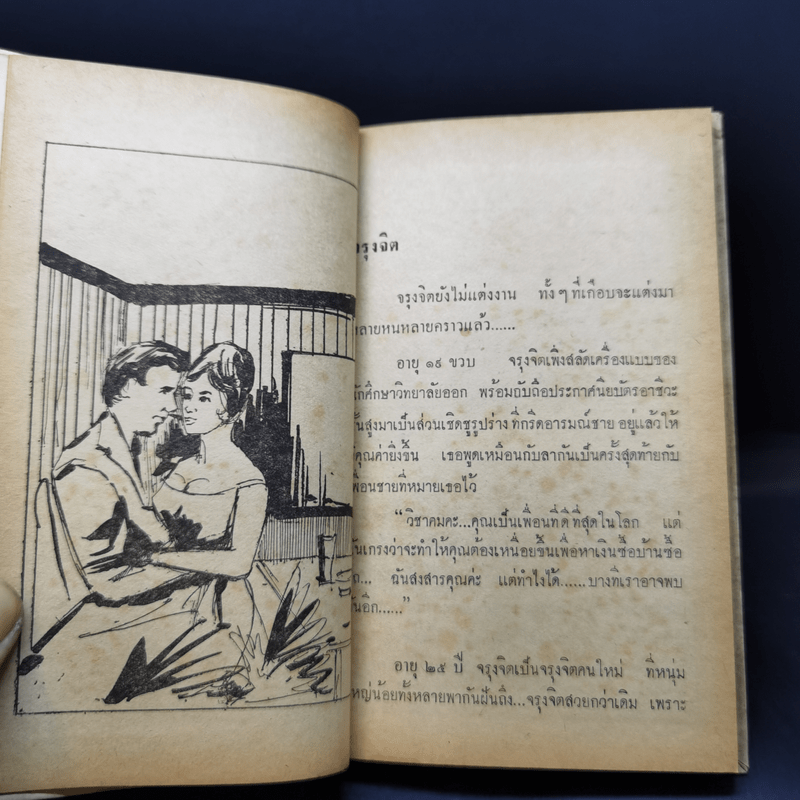 จรุงจิต
จรุงจิตยังไม่แต่งงาน ทั้ง ๆ ที่เกือบจะแต่งมา
หลายหนหลายคราวแล้ว......
อายุ ๑๙ ขวบ จรุงจิตเพิ่งสลัดเครื่องแบบของ
นักศึกษาวิทยาลัยออก พร้อมถับถือประกาศนียบัตรอาชีวะ
ชั้นสูงมาเป็นส่วนเชิดชูรูปร่าง ที่กรีดอารมณ์ชาย อยู่แล้วให้
มีคุณค่ายิ่งขึ้น เธอพูดเหมือนกับลากันเป็นครั้งสุดท้ายกับ
เพื่อนชายที่หมายเธอไว้
“วิชาคมคะ...คุณเป็นเพื่อนที่ดีที่สุดในโลก แต่
ฉันเกรงว่าจะทำให้คุณต้องเหนื่อยขึ้นเพื่อหาเงินซื้อบ้านซื้อ
รถ... ฉันสงสารคุณค่ะ แต่ทำไงได้......บางทีเราอาจพบ
กันอีก......”
อายุ ๒๕ ปี จรุงจิตเป็นจรุงจิตคนใหม่ ที่หนุ่ม
ใหญ่น้อยทั้งหลายพากันฝันถึง...จรุงจิตสวยกว่าเดิม เพราะ